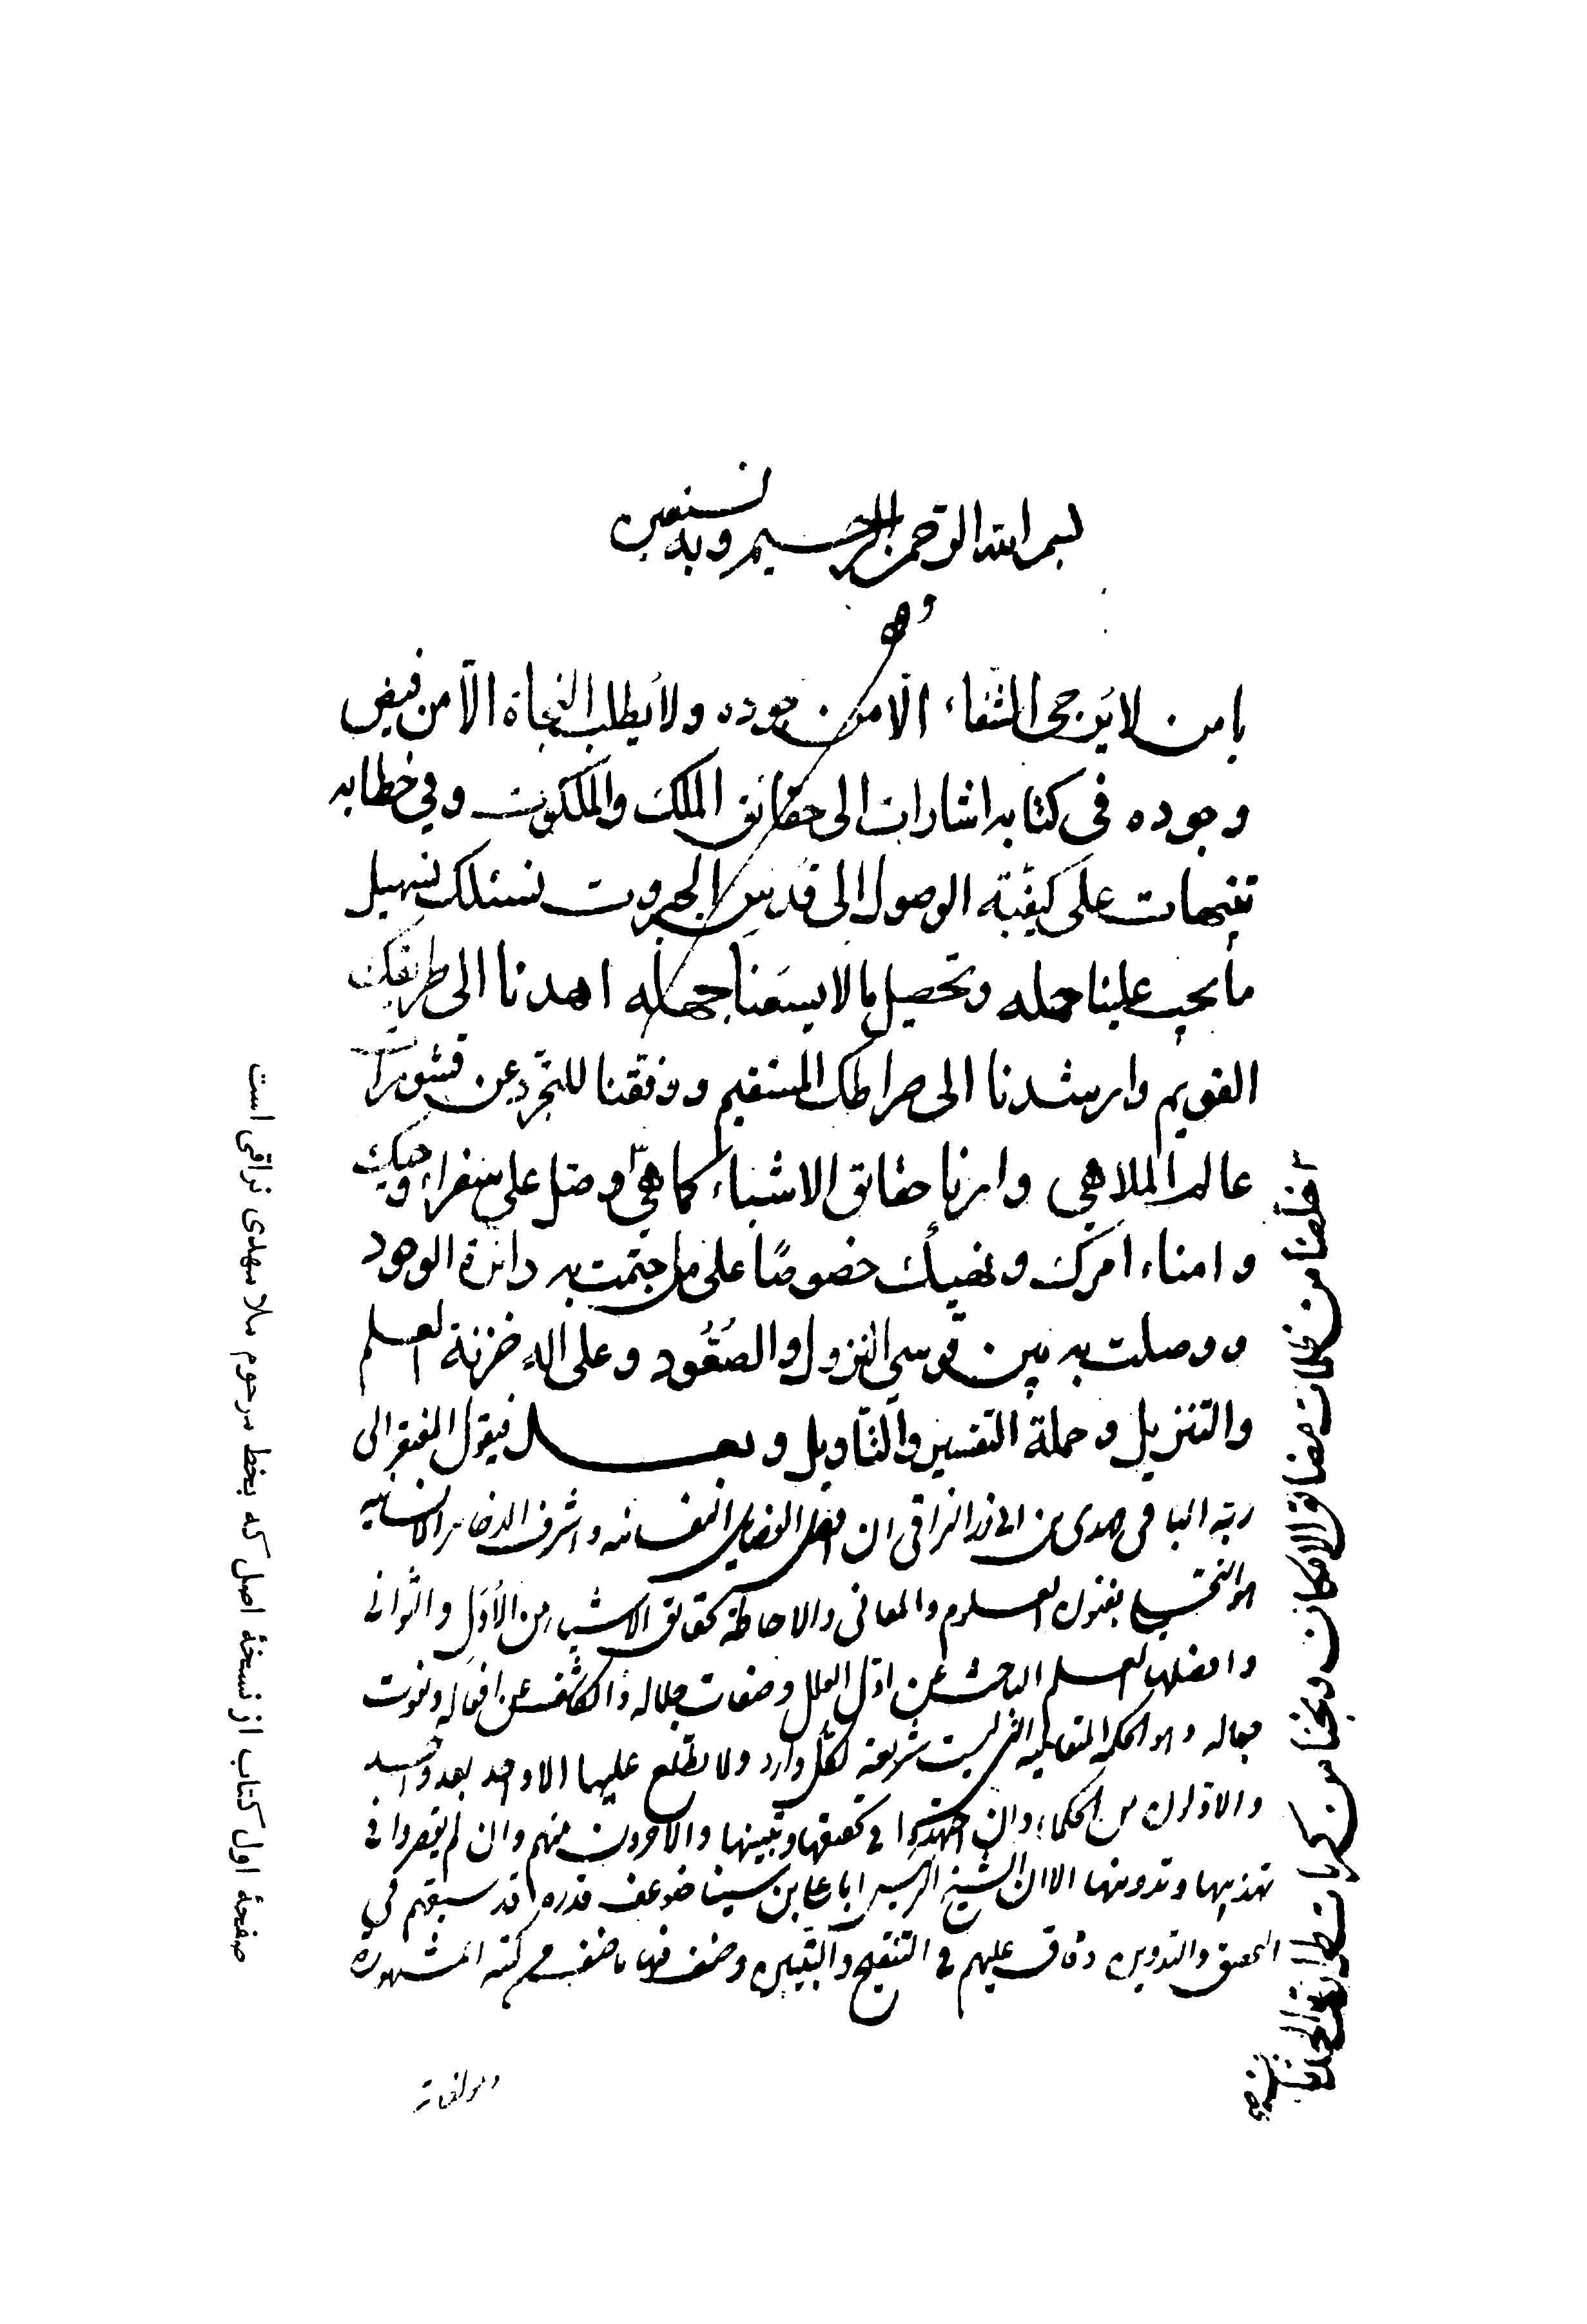 بسم الله الرحمن الرحيم وبه نستعين
يا من لا يُرجى الشفاء الّا من جوده ولا يُطلب النجاة الّا من فيض
وجوده فى كتابه اشارات الى حقائق الملك والملكوت وفي خطابه
تنبيهات على كيفيّة الوصول الى قدس الجبروت نسئلك تسهيل
ما يجب علينا حمله وتحصيل ما لا يسعنا جهله اهدنا الى طريقك
القويم وارشدنا الى صراطك المستقيم ووفّقنا للتجرّد عن قشورات
عالم الملاهي وارنا حقائق الاشياء كما هي وصلّ على سفراء وحيك
وامناء امرك ونهيك خصوصًا على من ختمت به دائرة الوجود
ووصلت به بين قوسي النزول والصُعُود وعلى اله خزنة العلم
والتنزيل وحملة التفسير والتأويل وبعد فيقول المفتقر الى
ربّه الباقى مهدى بن ابى ذر النراقى ان افضل الفضايل النفسانيه واشرف الذخاير الانسانيه
هو التحلى بفنون العلوم والمعانى والاحاطة بحقايق الاشياء من الأوَل والثوانى
وافضلها العلم الباحث عن اوّل العلل وصفات جلاله والكاشف عن افعاله ونعوت
جماله وهو الحكمة المتعاليه التى ليست شريعة لكلّ وارد ولا يطّلع عليها الا واحد بعد واحد
والاوّلون من الحكماء وان اجتهدوا فى تحقيقها وتبيينها والاخرون منهم وان لم يقصروا فى
تهذيبها وتدوينها الا ان الشيخ الرئيس ابا على ابن سينا ضوعف قدره قد سبقهم فى
التحقيق والتدوين وفاق عليهم فى التنقيح والتبيين وصنف فيها ما صنف من كتبه المشهورة
ومؤلفاته
خلّصنا من ظلمات مضائق الامكان ونجّنا من كربات طوارق الحدثان
صفحهٔ اول كتاب از نسخهٔ اصل كه بخط مرحوم ملا مهدى نراقى است